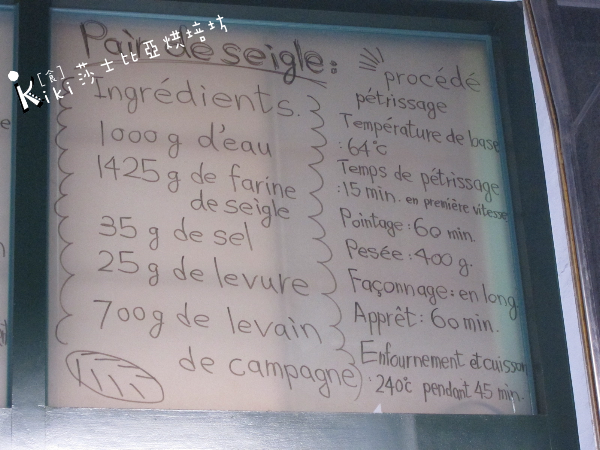 Pain de seigle:
[食] 莎士比亞烘培坊
Kiki
Ingrédients.
1000 g d'eau
1425 g de farine
de seigle
35 g de sel
25 g de levure
700g de levain
de campagne
procédé
pétrissage
Température de base
:64°c
Temps de pétrissage
:15 min. en première vitesse
Pointage:60 min.
Pesée:400 g.
Façonnage:en long
Apprêt:60 min.
Enfournement et cuisson
:240°c pendant 45 min.